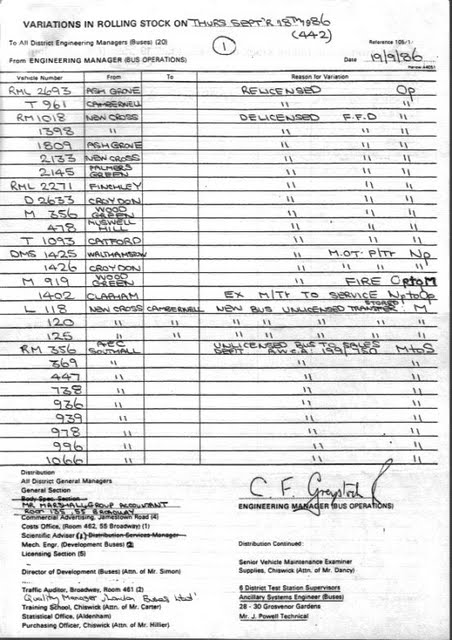 VARIATIONS IN ROLLING STOCK ON THURS SEPT'R 18TH 1986
(442)
To All District Engineering Managers (Buses) (20)
1
Reference 105/1
From ENGINEERING MANAGER (BUS OPERATIONS)
Date 19/9/86
Vehicle Number From To Reason for Variation
RML 2693 ASH GROVE RELICENSED Op
T 961 CAMBERWELL " "
RM 1018 NEW CROSS DELICENSED F.F.D "
1398 " " " "
1809 ASH GROVE " " "
2133 NEW CROSS " " "
2145 PALMERS GREEN " " "
RML 2271 FINCHLEY " " "
D 2633 CROYDON " " "
M 356 WOOD GREEN " " "
478 MUSWELL HILL " " "
T 1093 CATFORD " " "
DMS 1425 WALTHAMSTOW " M.O.T. P/Tr Np
1426 CROYDON " " " "
M 919 WOOD GREEN " FIRE OptoM
1402 CLAPHAM EX M/Tr TO SERVICE NptoOp
L 118 NEW CROSS CAMBERWELL NEW BUS UNLICENSED STORED TRANSFER M
120 " " " " " " "
125 " " " " " " "
RM 356 AEC SOUTHALL UNLICENSED BUS TO SALES DEPT A.W.C.A. 199/750 MtoS
369 " " "
447 " " "
738 " " "
936 " " "
939 " " "
978 " " "
996 " " "
1066 " " "
Distribution
All District General Managers
General Section
Body Spec. Section
MR MARSHALL GROUP ACCOUNTANT
ROOM 135 55 BROADWAY
Commercial Advertising, Jamestown Road (4)
Costs Office, (Room 462, 55 Broadway) (1)
Scientific Adviser (1) Distribution Services Manager
Mech. Engr. (Development Buses) (2)
Licensing Section (5)
Director of Development (Buses) (Attn. of Mr. Simon)
Traffic Auditor, Broadway, Room 461 (2)
Quality Manager London Buses Ltd
Training School, Chiswick (Attn. of Mr. Carter)
Statistical Office, (Aldenham)
Purchasing Officer, Chiswick (Attn. of Mr. Hillier)
C. F. Greystock
ENGINEERING MANAGER (BUS OPERATIONS)
Distribution Continued:
Senior Vehicle Maintenance Examiner
Supplies, Chiswick (Attn. of Mr. Dancy)
6 District Test Station Supervisors
Ancillary Systems Engineer (Buses)
28 - 30 Grosvenor Gardens
Mr. J. Powell Technical